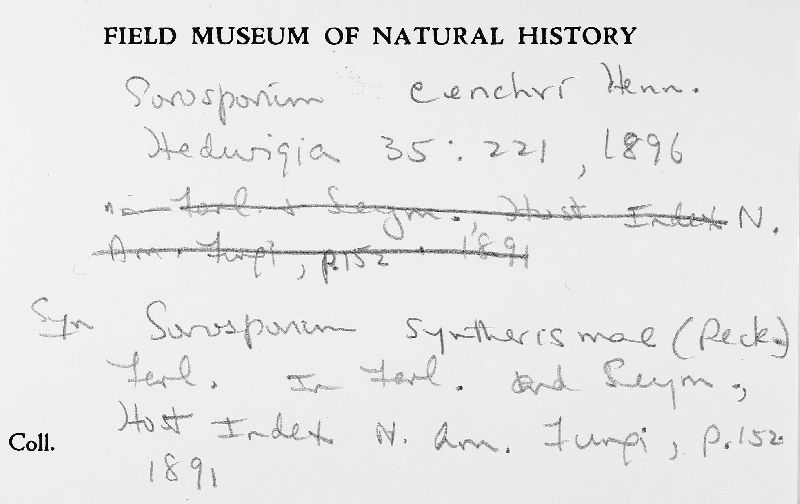 FIELD MUSEUM OF NATURAL HISTORY
Sorosporium cenchri Henn.
Hedwigia 35: 221, 1896
in Farl. & Seym. Host Index N.
Am. Fungi, p.152 1891
Syn Sorosporium syntherismae (Peck)
Farl. In Farl. and Seym.,
Host Index N. Am. Fungi, p.152
Coll.
1891